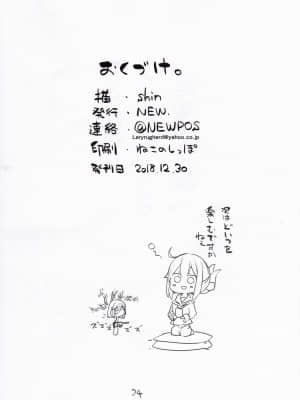 おくづけ。
描・shin
発行・NEW.
連絡・@NEWPOS
Leryrugherd@yahoo.co.jp
印刷・ねこのしっぽ
発刊日 2018.12.30
ズズズ ズズ
24